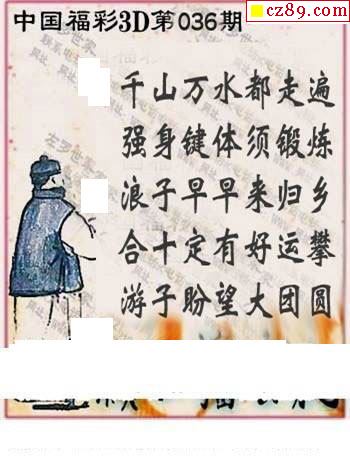 cz89.com
中国福彩3D第036期
千山万水都走遍
强身键体须锻炼
浪子早早来归乡
合十定有好运攀
游子盼望大团圆